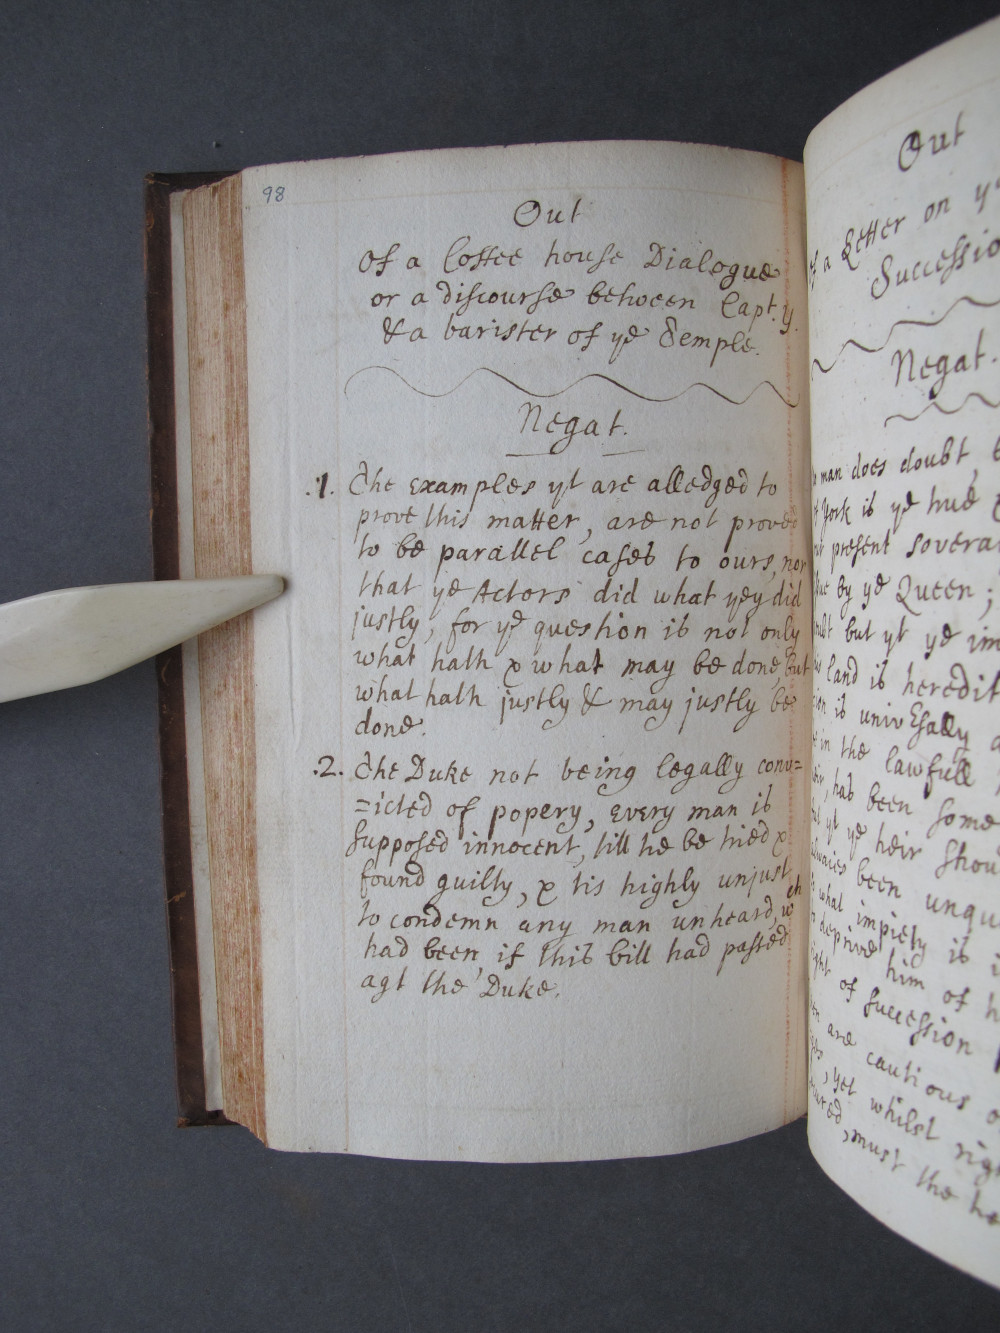 98
Out
Of a Coffee house Dialogue
or a discourse between Capt. Y.
& a barister of ye Temple.
Negat.
.1. The examples yt are alledged to
prove this matter, are not proved
to be parallel cases to ours, nor
that ye Actors did what yey did
justly, for ye question is not only
what hath & what may be done, but
what hath justly & may justly be
done.
.2. The Duke not being legally conv=
=icted of popery, every man is
supposed innocent, till he be tried &
found guilty, & tis highly unjust
to condemn any man unheard, wch
had been, if this bill had passed
agt the Duke.
Out
of a Letter on ye
Successio
Negat.
man does doubt,
York is ye true
present sovera
by ye Queen;
but yt ye im
land is heredit
is universally
in the lawfull
has been some
yt ye heir shou
been unqu
what impiety is
deprive him of h
of succession
are cautious o
, yet whilst rig
, must the he